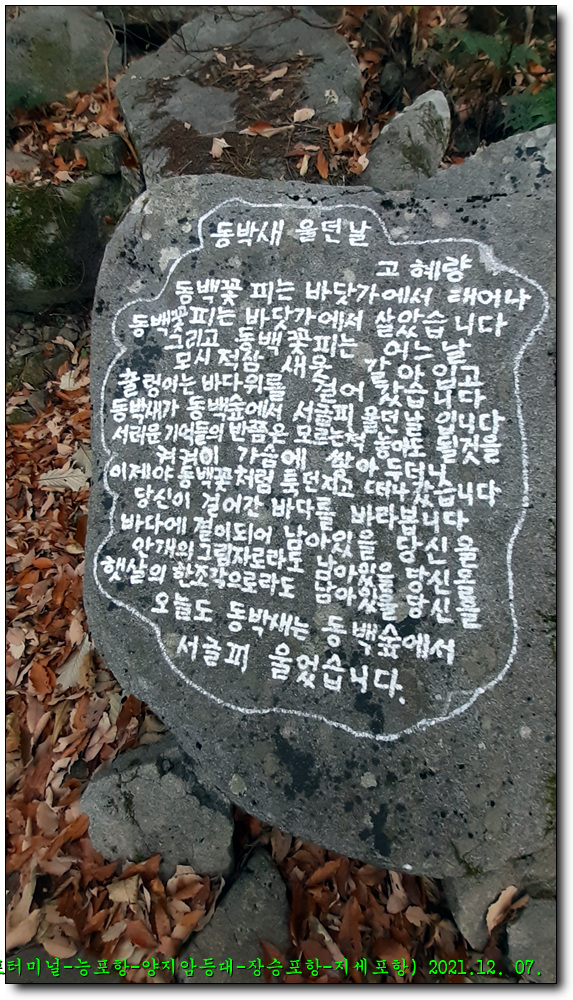 동박새 울던날
고 혜량
동백꽃 피는 바닷가에서 태어나
동백꽃피는 바닷가에서 살았습니다
그리고 동백꽃피는 어느날
모시적삼 새옷 갈아입고
출렁이는 바다위를 걸어 갔습니다
동박새가 동백숲에서 서글피 울던날 입니다
서러운 기억들의 반쯤은 모르는척 놓아도 될것을
켜켜이 가슴에 쌓아 두더니
이제야 동백꽃처럼 툭 던지고 떠나갔습니다
당신이 걸어간 바다를 바라봅니다
바다에 결이되어 남아있을 당신을
안개의 그림자로라도 남아있을 당신을
햇살의 한조각으로라도 남아있을 당신을
오늘도 동박새는 동백숲에서
서글피 울었습니다.
터미널-능포항-양지암등대-장승포항-지세포항) 2021.12. 07.